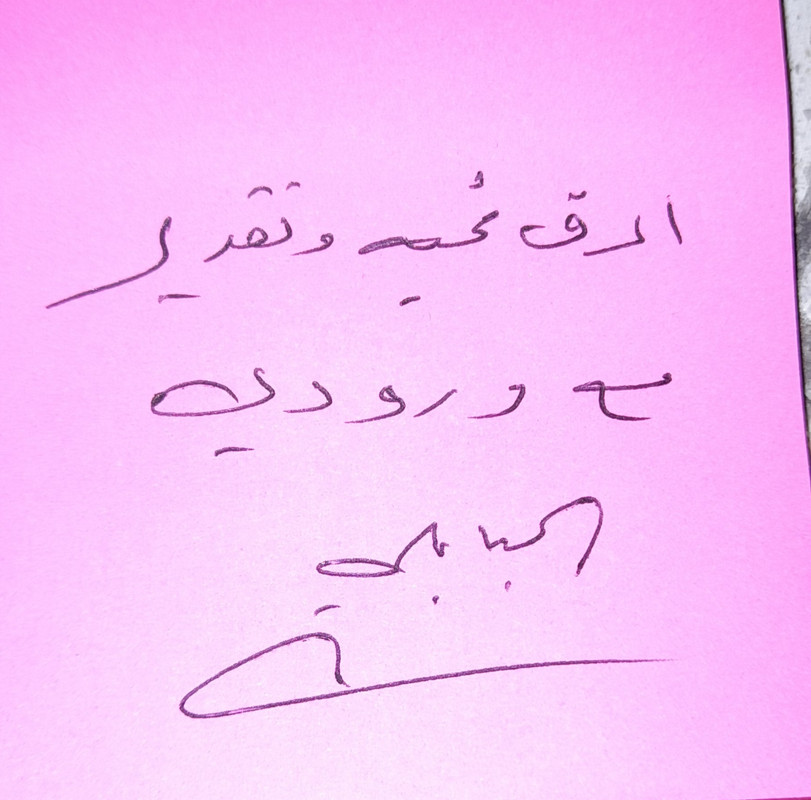 ارق تحيه وتقدير
مع ورودي
البابلي